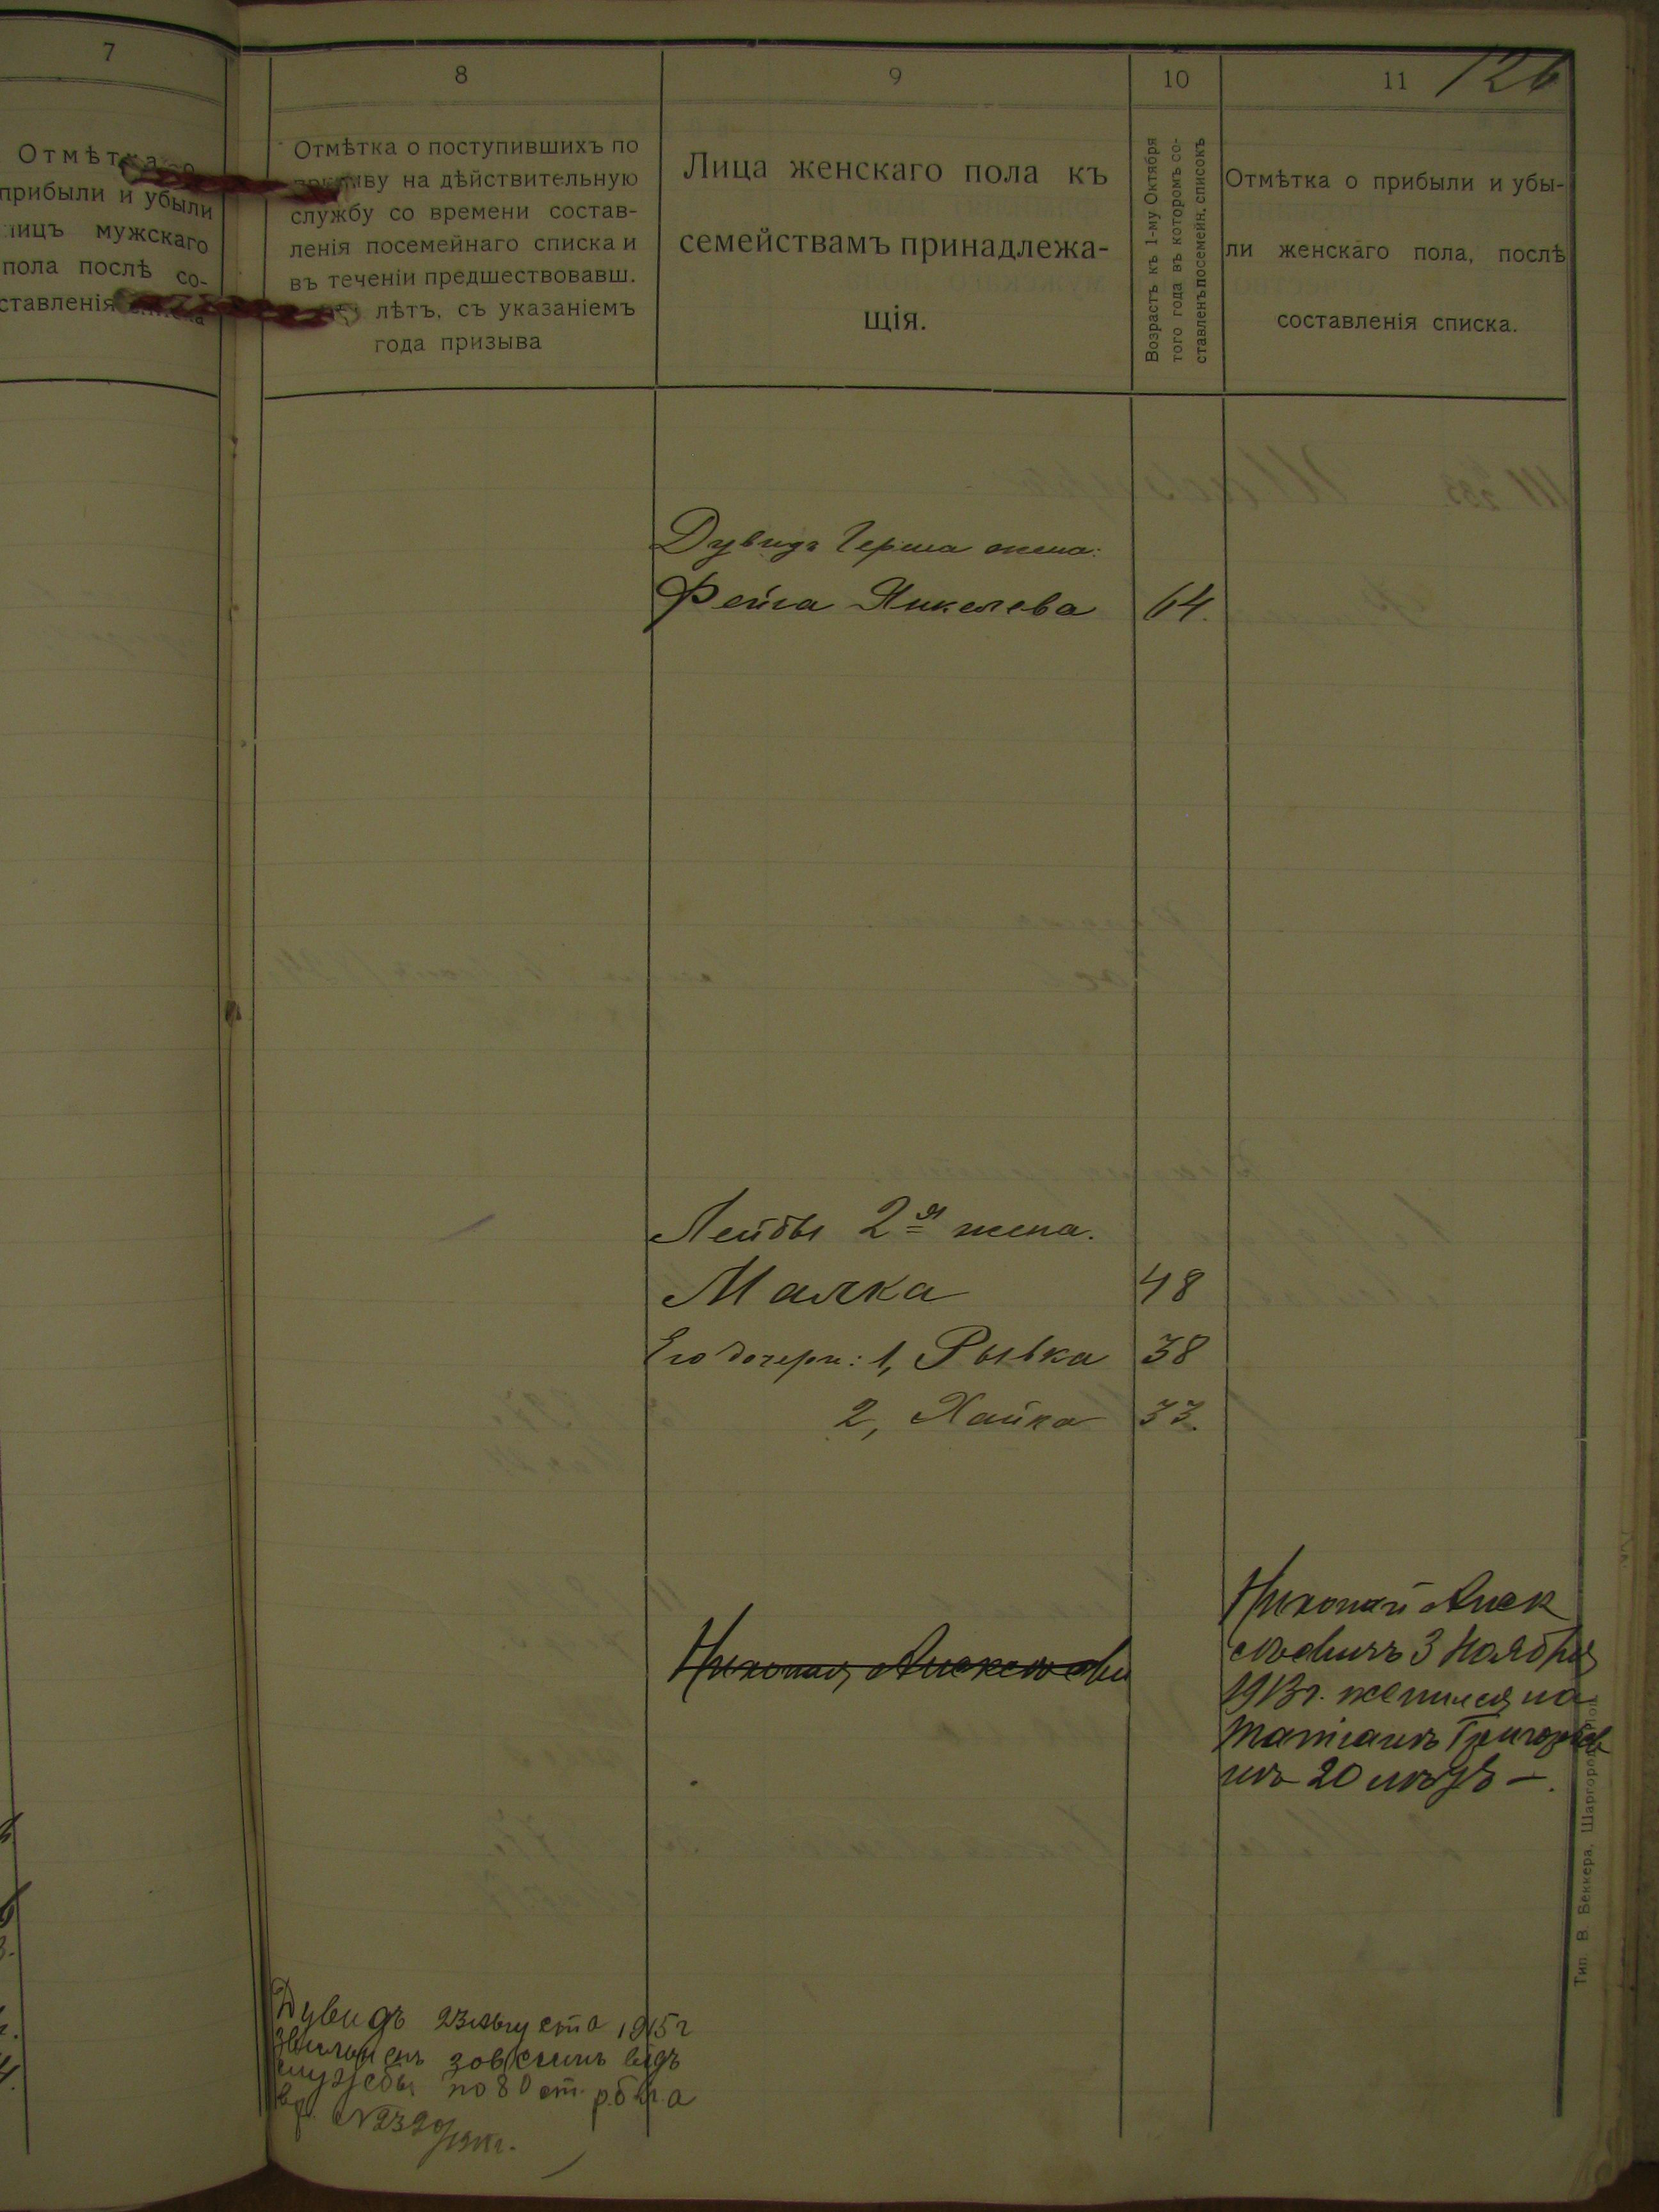 7
Отмѣтка о
прибыли и убыли
лицъ мужскаго
пола послѣ со-
ставленія списка
8
Отмѣтка о поступившихъ по
призыву на дѣйствительную
службу со времени состав-
ленія посемейнаго списка и
въ теченіи предшествовавш.
лѣтъ, съ указаніемъ
года призыва
9
Лица женскаго пола къ
семействамъ принадлежа-
щія.
10
Возрастъ къ 1-му Октября
того года въ которомъ со-
ставленъ посемейн. списокъ
11
126
Отмѣтка о прибыли и убы-
ли женскаго пола, послѣ
составленія списка.
Дувидъ Герша жена:
Фейга Янкелева 64.
Лейбы 2я жена.
Малка 48
Его дочери: 1, Рывка 38
2, Хайка 33.
Николай Алексѣеви
Николай Алек
сѣевичъ 3 Ноября
1913г. женился на
Татіанѣ Григорьев
нѣ 20 лѣтъ —.
Дувидъ 23 августа 1915г
службы по 80 ст.
№2320
Тип. В. Беккера, Шаргородъ Под.